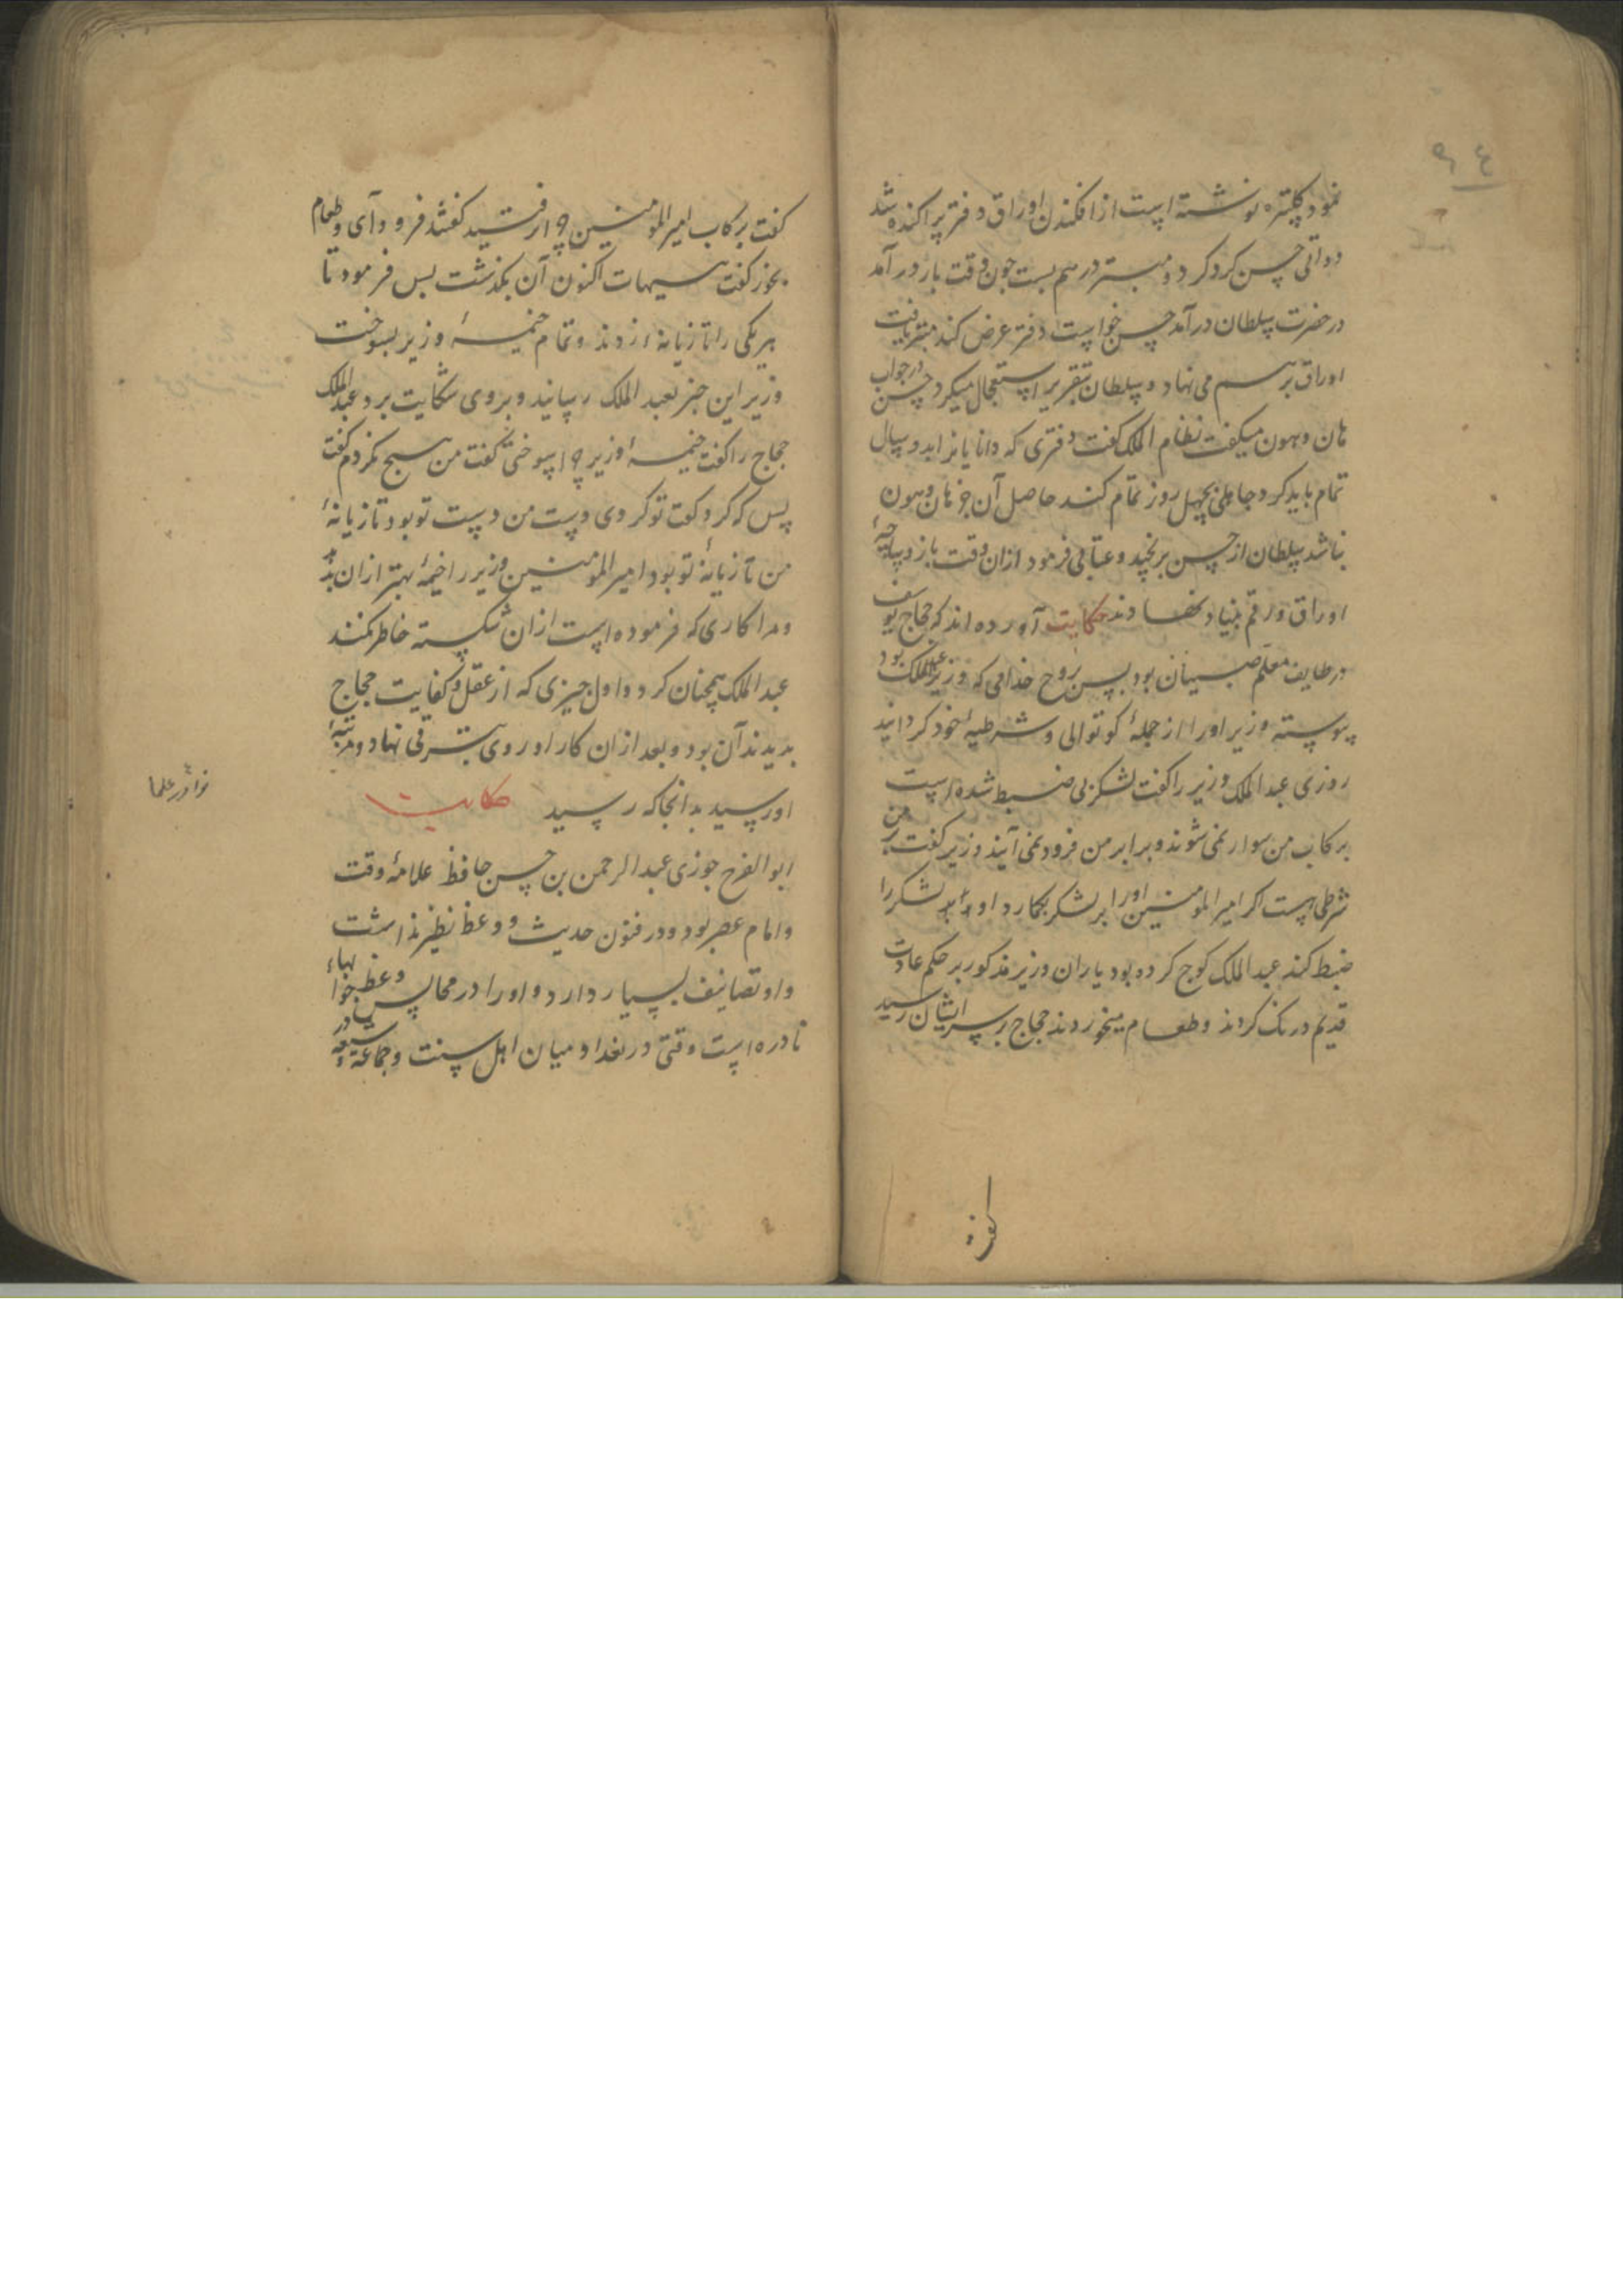 ۹۴
نمود کپتره نوشته است از افکندن اوراق دفتر پراکنده شد
دواتی حسن کرد کرد و مبتر درهم بست چون وقت بار درآمد
در حضرت سلطان درآمد حسن خواست دفتر عرض کند مبتر یافت
اوراق برهم می نهاد و سلطان بتقریر استعجال میکرد و حسن در جواب
هان و هون میکفت نظام الملک کفت دفتری که دانایانرا بدو سال
تمام باید کرد جاهلی بچهل روز تمام کند حاصل آن جز هان و هون
نباشد سلطان از حسن برنجید و عتابی فرمود ازان وقت باز
اوراق و رقم بنیاد نهادند حکایت آورده اند که حجاج یوسف
در طایف معلم صبیان بود پس روح خدامی که وزیر عبدالملک بود
پیوسته وزیر او را از جمله کوتوالی و شرطیه خود کردانید
روزی عبد الملک وزیر را کفت لشکر بی ضبط شده است
برکاب من سوار نمی شوند و برابر من فرود نمی آیند وزیر کفت
شرطی است اکر امیر المومنین او را بر لشکر بکمارد او لشکر را
ضبط کند عبد الملک کوچ کرده بود یاران وزیر مذکور بر حکم عادت
قدیم درنک کردند و طعام میخوردند حجاج بر سر ایشان رسید
کفت
کفت برکاب امیر المومنین چرا نرفتید کفتند فرود آی و طعام
بخور کفت هیهات اکنون آن بکذشت پس فرمود تا
هر یکی را تازیانه زدند و تمام خیمهٔ وزیر بسوخت
وزیر این خبر بعبد الملک رسانید و بروی شکایت برد عبد الملک
حجاج را کفت خیمهٔ وزیر چرا سوختی کفت من هیچ نکردم کفت
پس که کرد کفت تو کردی دست من دست تو بود تازیانهٔ
من تازیانهٔ تو بود امیر المومنین وزیر را خیمهٔ بهتر ازان بدهد
و مرا کاری که فرموده است ازان شکسته خاطر نکند
عبد الملک همچنان کرد و اول چیزی که از عقل و کفایت حجاج
بدیدند آن بود و بعد ازان کار او روی بترقی نهاد و مرتبهٔ
او رسید بدانجا که رسید حکایت
نوادر علما
ابو الفرج جوزی عبد الرحمن بن حسن حافظ علامهٔ وقت
و امام عصر بود و در فنون حدیث و وعظ نظیر نداشت
و او تصانیف بسیار دارد و او را در مجالس وعظ جوابهاء
نادره است وقتی در بغداد میان اهل سنت و جماعة و شیعه